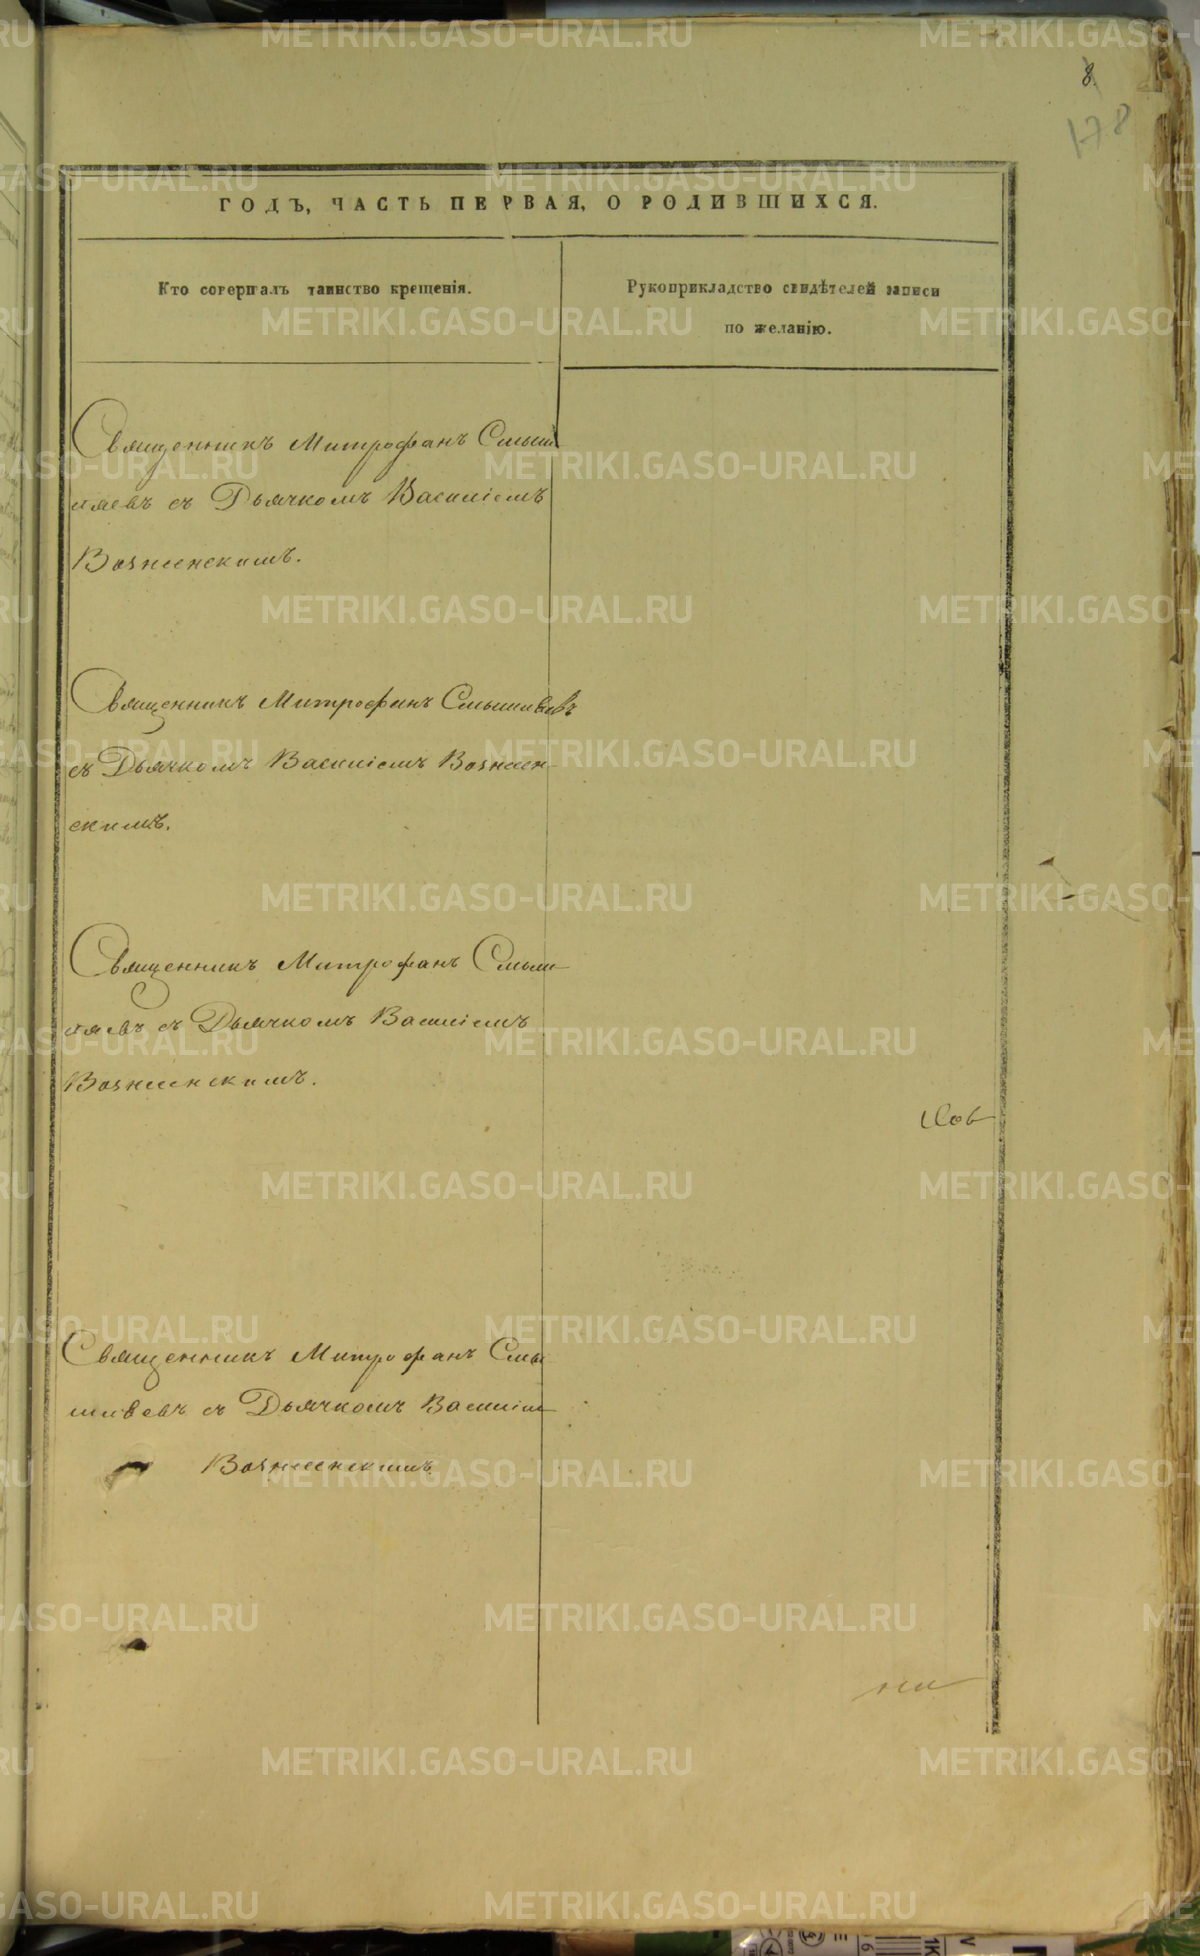 8.
178
ГОДЪ, ЧАСТЬ ПЕРВАЯ, О РОДИВШИХСЯ.
Кто совершалъ таинство крещенія.
Рукоприкладство свидѣтелей записи
по желанію.
Священникъ Митрофанъ Смыш
ляевъ съ Дьячкомъ Василіемъ
Вознесенскимъ.
Священникъ Митрофанъ Смышляевъ
съ Дьячкомъ Василіемъ Вознесен
скимъ.
Священникъ Митрофанъ Смыш
ляевъ съ Дьячкомъ Василіемъ
Вознесенскимъ.
Священникъ Митрофанъ Смы
шляевъ съ Дьячкомъ Василіем
Вознесенскимъ
METRIKI.GASO-URAL.RU